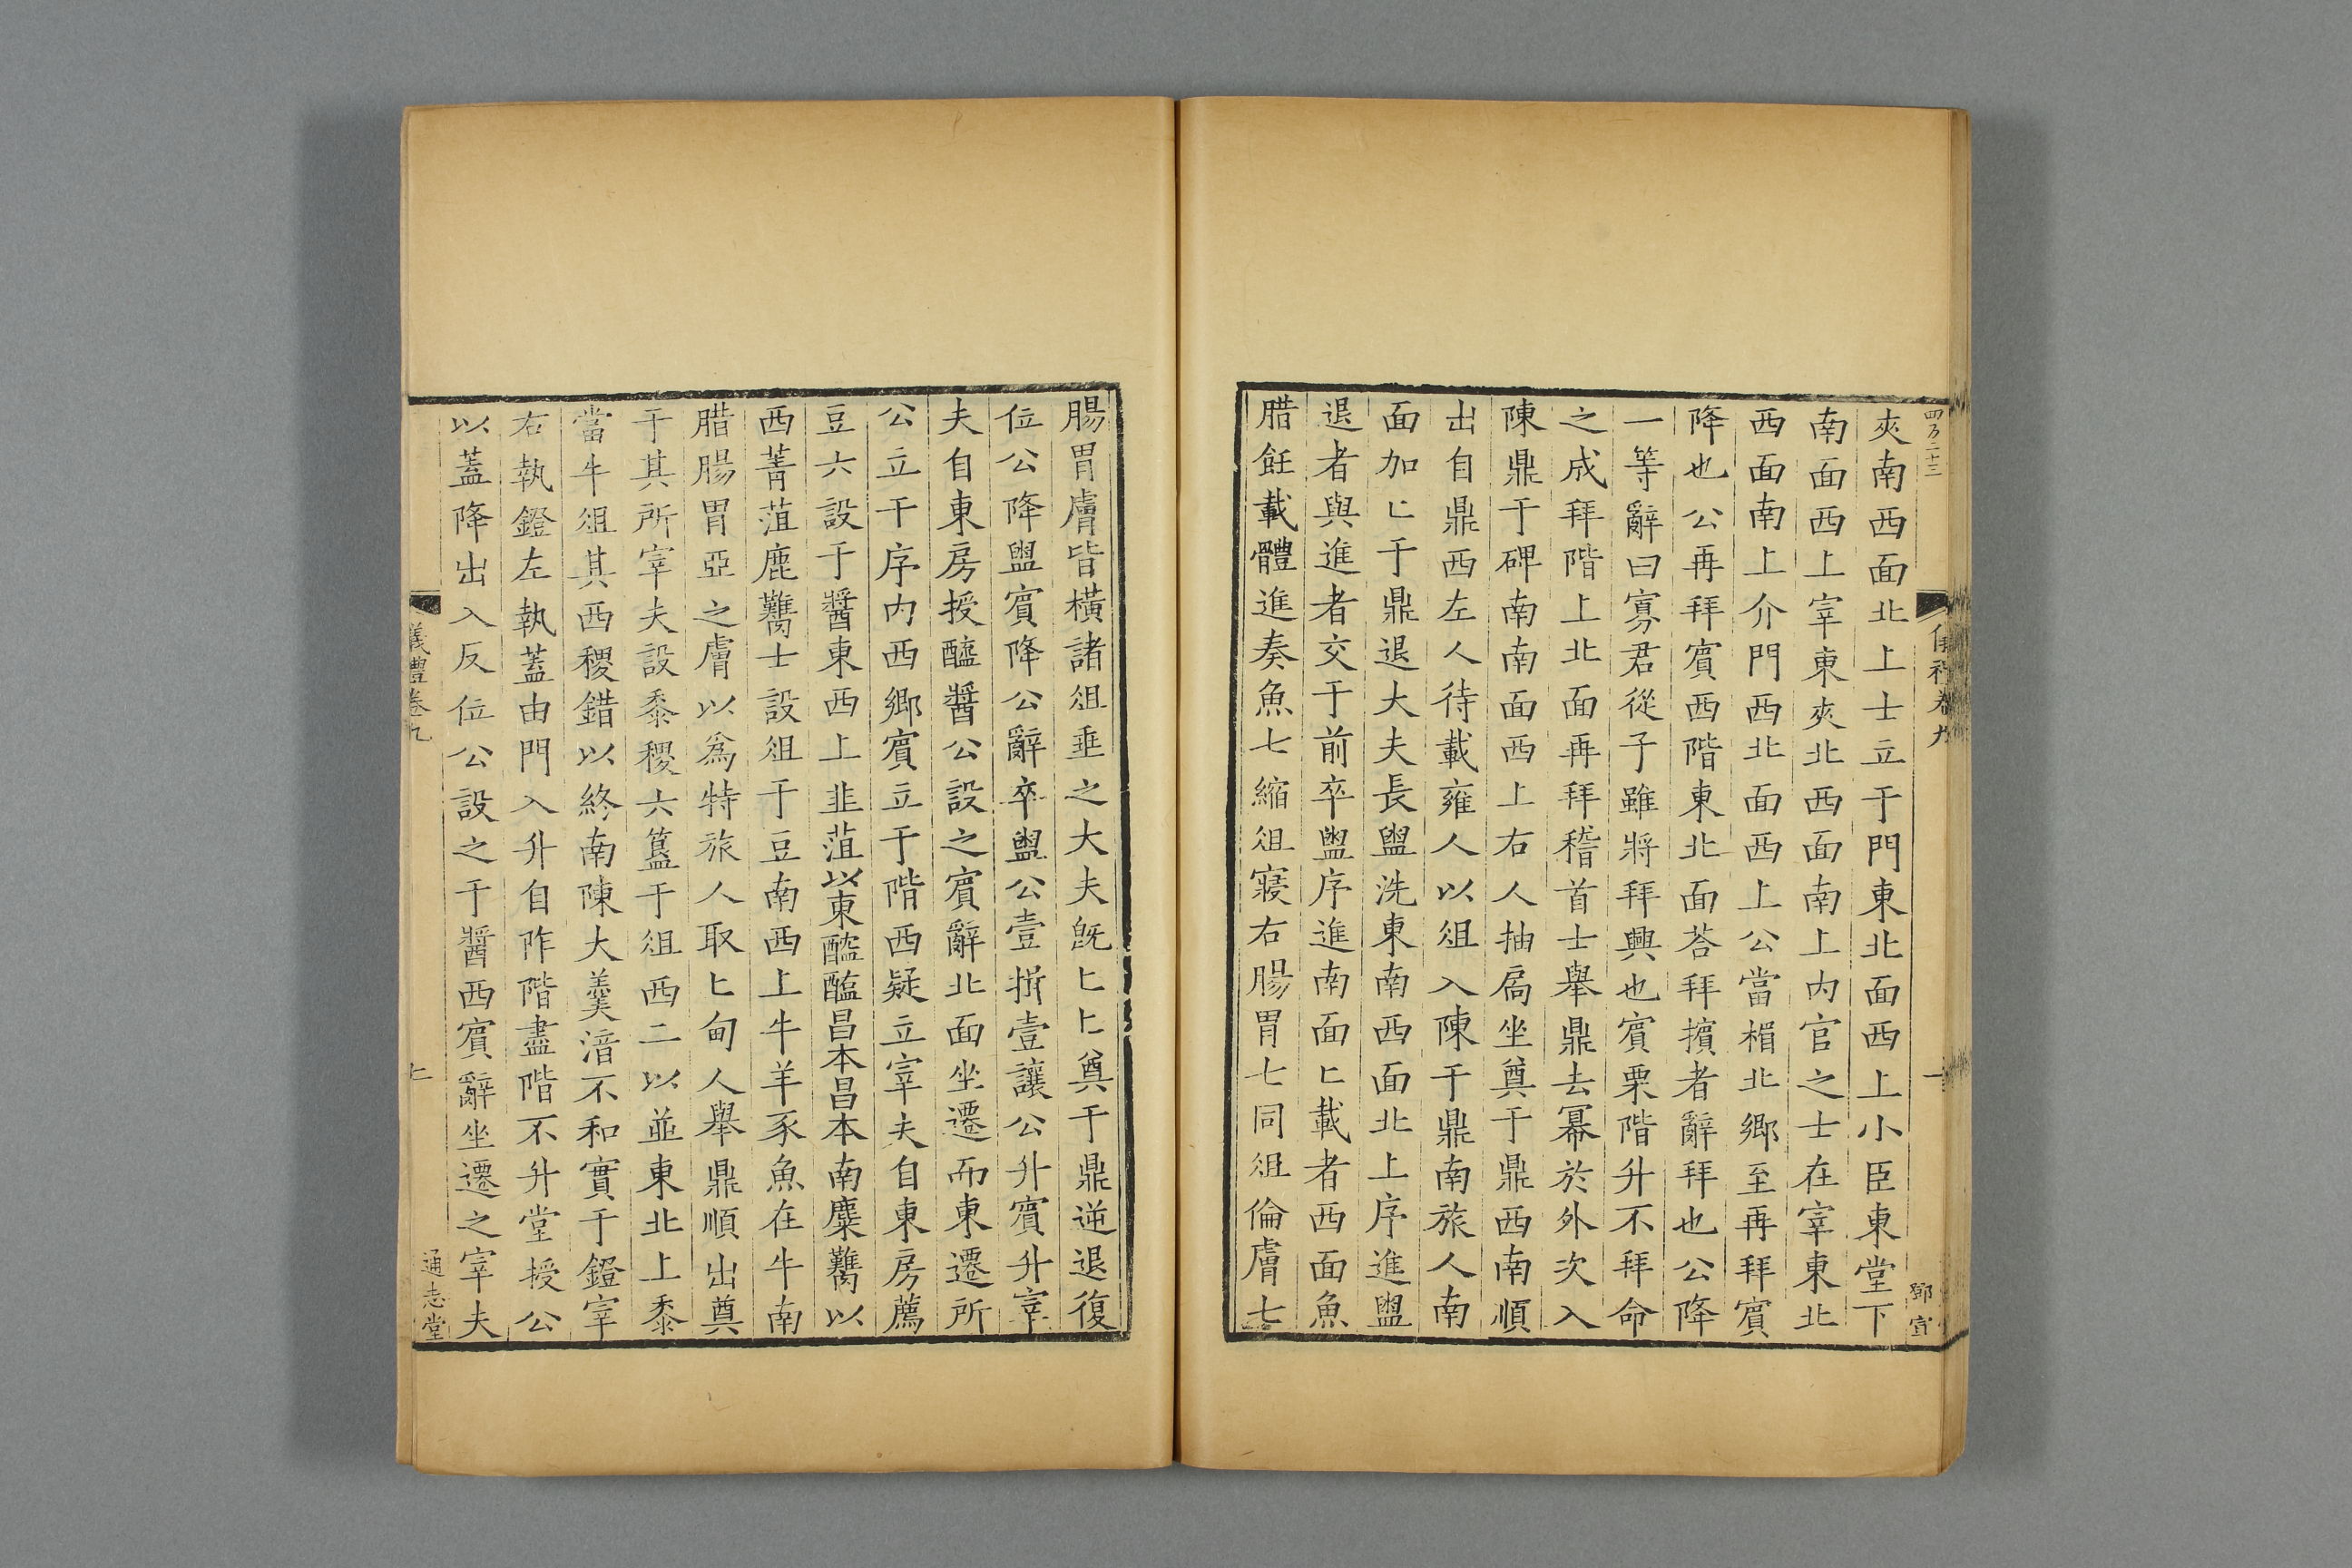 四万二十三
夾南西面北上士立于門東北面西上小臣東堂下
南面西上宰東夾北西面南上内官之士在宰東北
西面南上介門西北面西上公當楣北鄉至再拜賓
降也公再拜賓西階東北面荅拜擯者辭拜也公降
一等辭曰寡君從子雖將拜興也賓栗階升不拜命
之成拜階上北面再拜稽首士舉鼎去冪於外次入
陳鼎于碑南南面西上右人抽扃坐奠于鼎西南順
出自鼎西左人待載雍人以俎入陳于鼎南旅人南
面加匕于鼎退大夫長盥洗東南西面北上序進盥
退者與進者交于前卒盥序進南面匕載者西面魚
腊飪載體進奏魚七縮俎寢右腸胃七同俎倫膚七
鄧宣
腸胃膚皆橫諸俎垂之大夫旣匕匕奠于鼎逆退復
位公降盥賓降公辭卒盥公壹揖壹讓公升賓升宰
夫自東房授醯醬公設之賓辭北面坐遷而東遷所
公立于序内西鄉賓立于階西疑立宰夫自東房薦
豆六設于醬東西上韭菹以東醓醢昌本昌本南麋臡以
西菁菹鹿臡士設俎于豆南西上牛羊豕魚在牛南
腊腸胃亞之膚以爲特旅人取匕甸人舉鼎順出奠
于其所宰夫設黍稷六簋于俎西二以並東北上黍
當牛俎其西稷錯以終南陳大羹湆不和實于鐙宰
右執鐙左執蓋由門入升自阼階盡階不升堂授公
以蓋降出入反位公設之于醬西賓辭坐遷之宰夫
儀禮卷九
七
通志堂